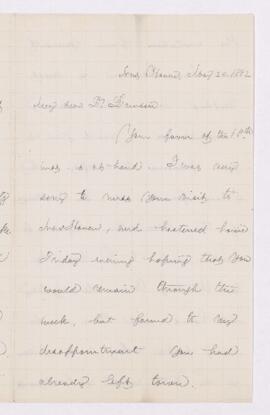 New Haven, May 20, 1882
My dear Dr.
Your favor of the 18th
was at hand. I was very
sorry to miss your visit to
New Haven, and hastened home
Friday evening hoping that you
would remain through the
week, but found to my
disappointment you had
already left town.